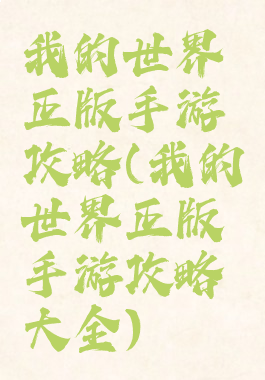 我的世界
正版手游
攻略(我的
世界正版
手游攻略
大全)